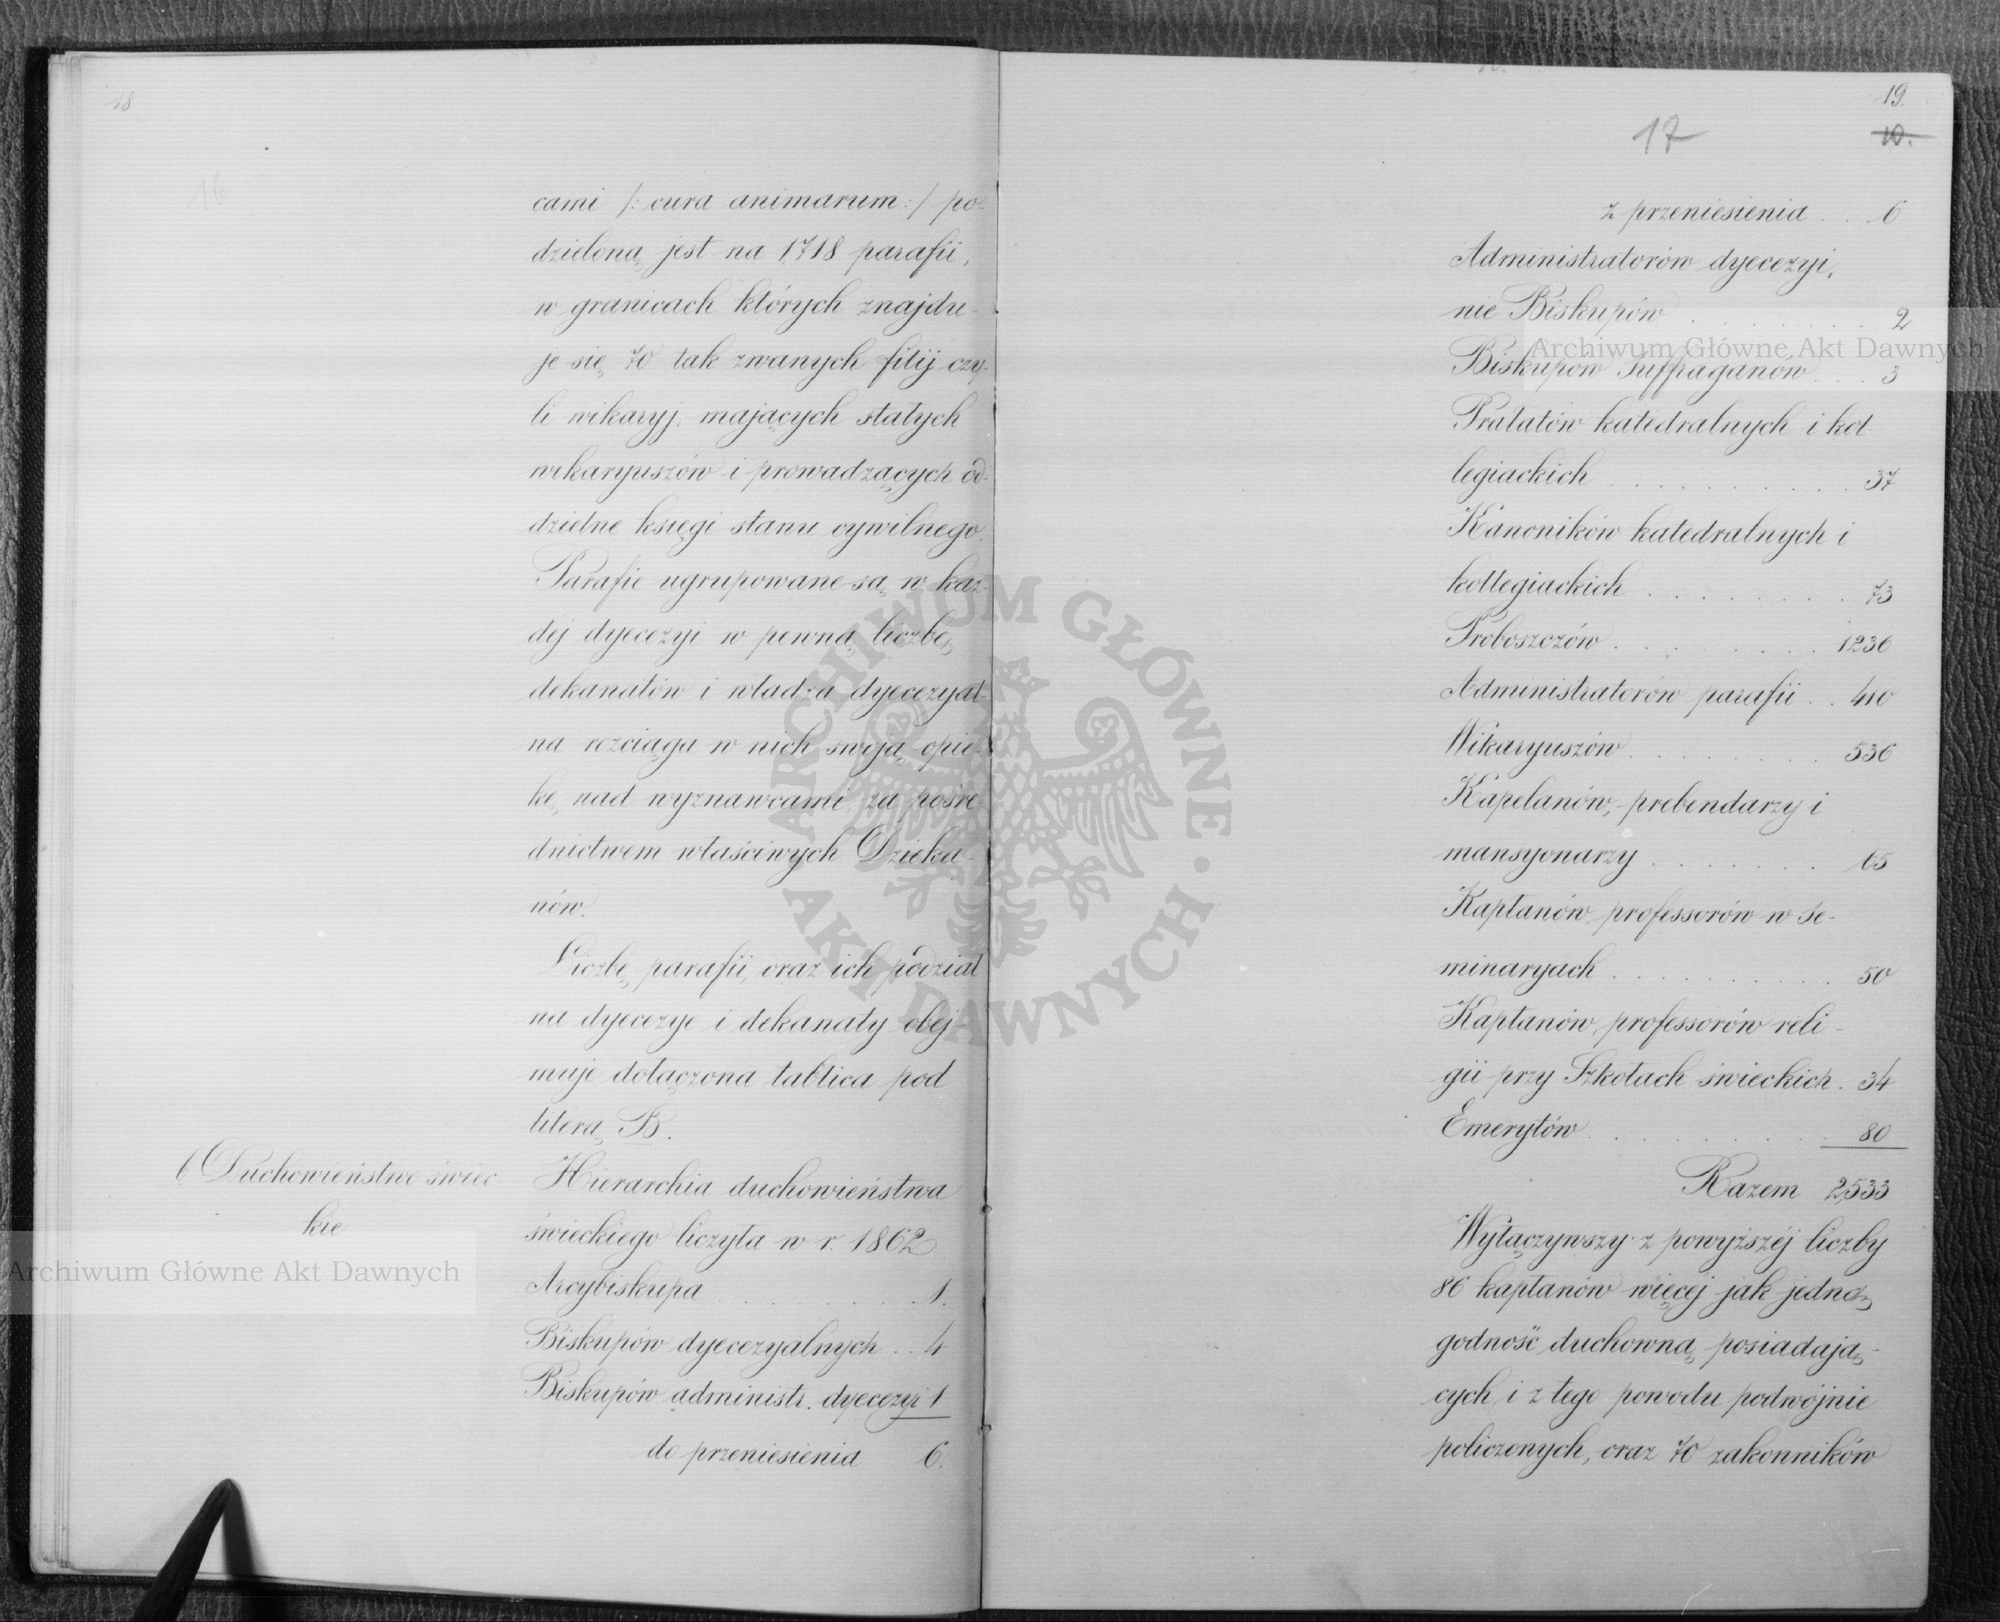 18
16
cami /: cura animarum :/ po-
dzieloną jest na 1718 parafii,
w granicach których znajdu-
je się 70 tak zwanych filij czy-
li wikaryj, mających stałych
wikaryuszów i prowadzących od-
dzielne księgi stanu cywilnego.
Parafie ugrupowane są w każ-
dej dyecezyi w pewną liczbę
dekanatów i władza dyecezyal-
na rozciąga w nich swoją opie-
kę nad wyznawcami za pośre-
dnictwem właściwych Dzieka-
nów.
Liczbę parafii oraz ich podział
na dyecezye i dekanaty obej-
muje dołączona tablica pod
literą B.
6 Duchowieństwo świec-
kie
Hierarchia duchowieństwa
świeckiego liczyła w r. 1862
Arcybiskupa . . . . . . . . 1.
Biskupów dyecezyalnych . . 4
Biskupów administr. dyecezyi 1
do przeniesienia 6.
19.
10.
17
z przeniesienia . . 6
Administratorów dyecezyi,
nie Biskupów . . . . . . . . 2
Biskupów Suffraganów . . . 3
Prałatów katedralnych i kol
legiackich . . . . . . . . . . 37
Kanoników katedralnych i
kollegiackich . . . . . . . . 73
Proboszczów . . . . . . . 1236
Administratorów parafii . . 410
Wikaryuszów . . . . . . . . 536
Kapelanów, prebendarzy i
mansyonarzy . . . . . . . 65
Kapłanów professorów w se-
minaryach . . . . . . . . . 50
Kapłanów, professorów reli-
gii przy Szkołach świeckich . 34
Emerytów . . . . . . . . . . 80
Razem 2,533
Wyłączywszy z powyższéj liczby
86 kapłanów więcéj jak jedną
godność duchowną posiadają-
cych i z tego powodu podwójnie
policzonych, oraz 70 zakonników
Archiwum Główne Akt Dawnych
Archiwum Główne Akt Dawnych
ARCHIWUM GŁÓWNE · AKT DAWNYCH ·